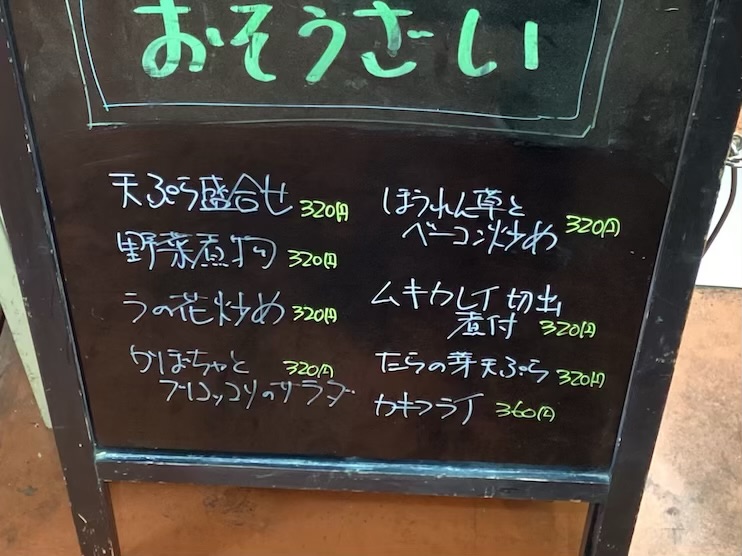 おそうざい
天ぷら盛合せ 320円
野菜煮物 320円
うの花炒め 320円
かぼちゃと 320円
ブロッコリのサラダ
ほうれん草と
ベーコン炒め 320円
ムキカレイ切出
煮付 320円
たらの芽天ぷら 320円
カキフライ 360円